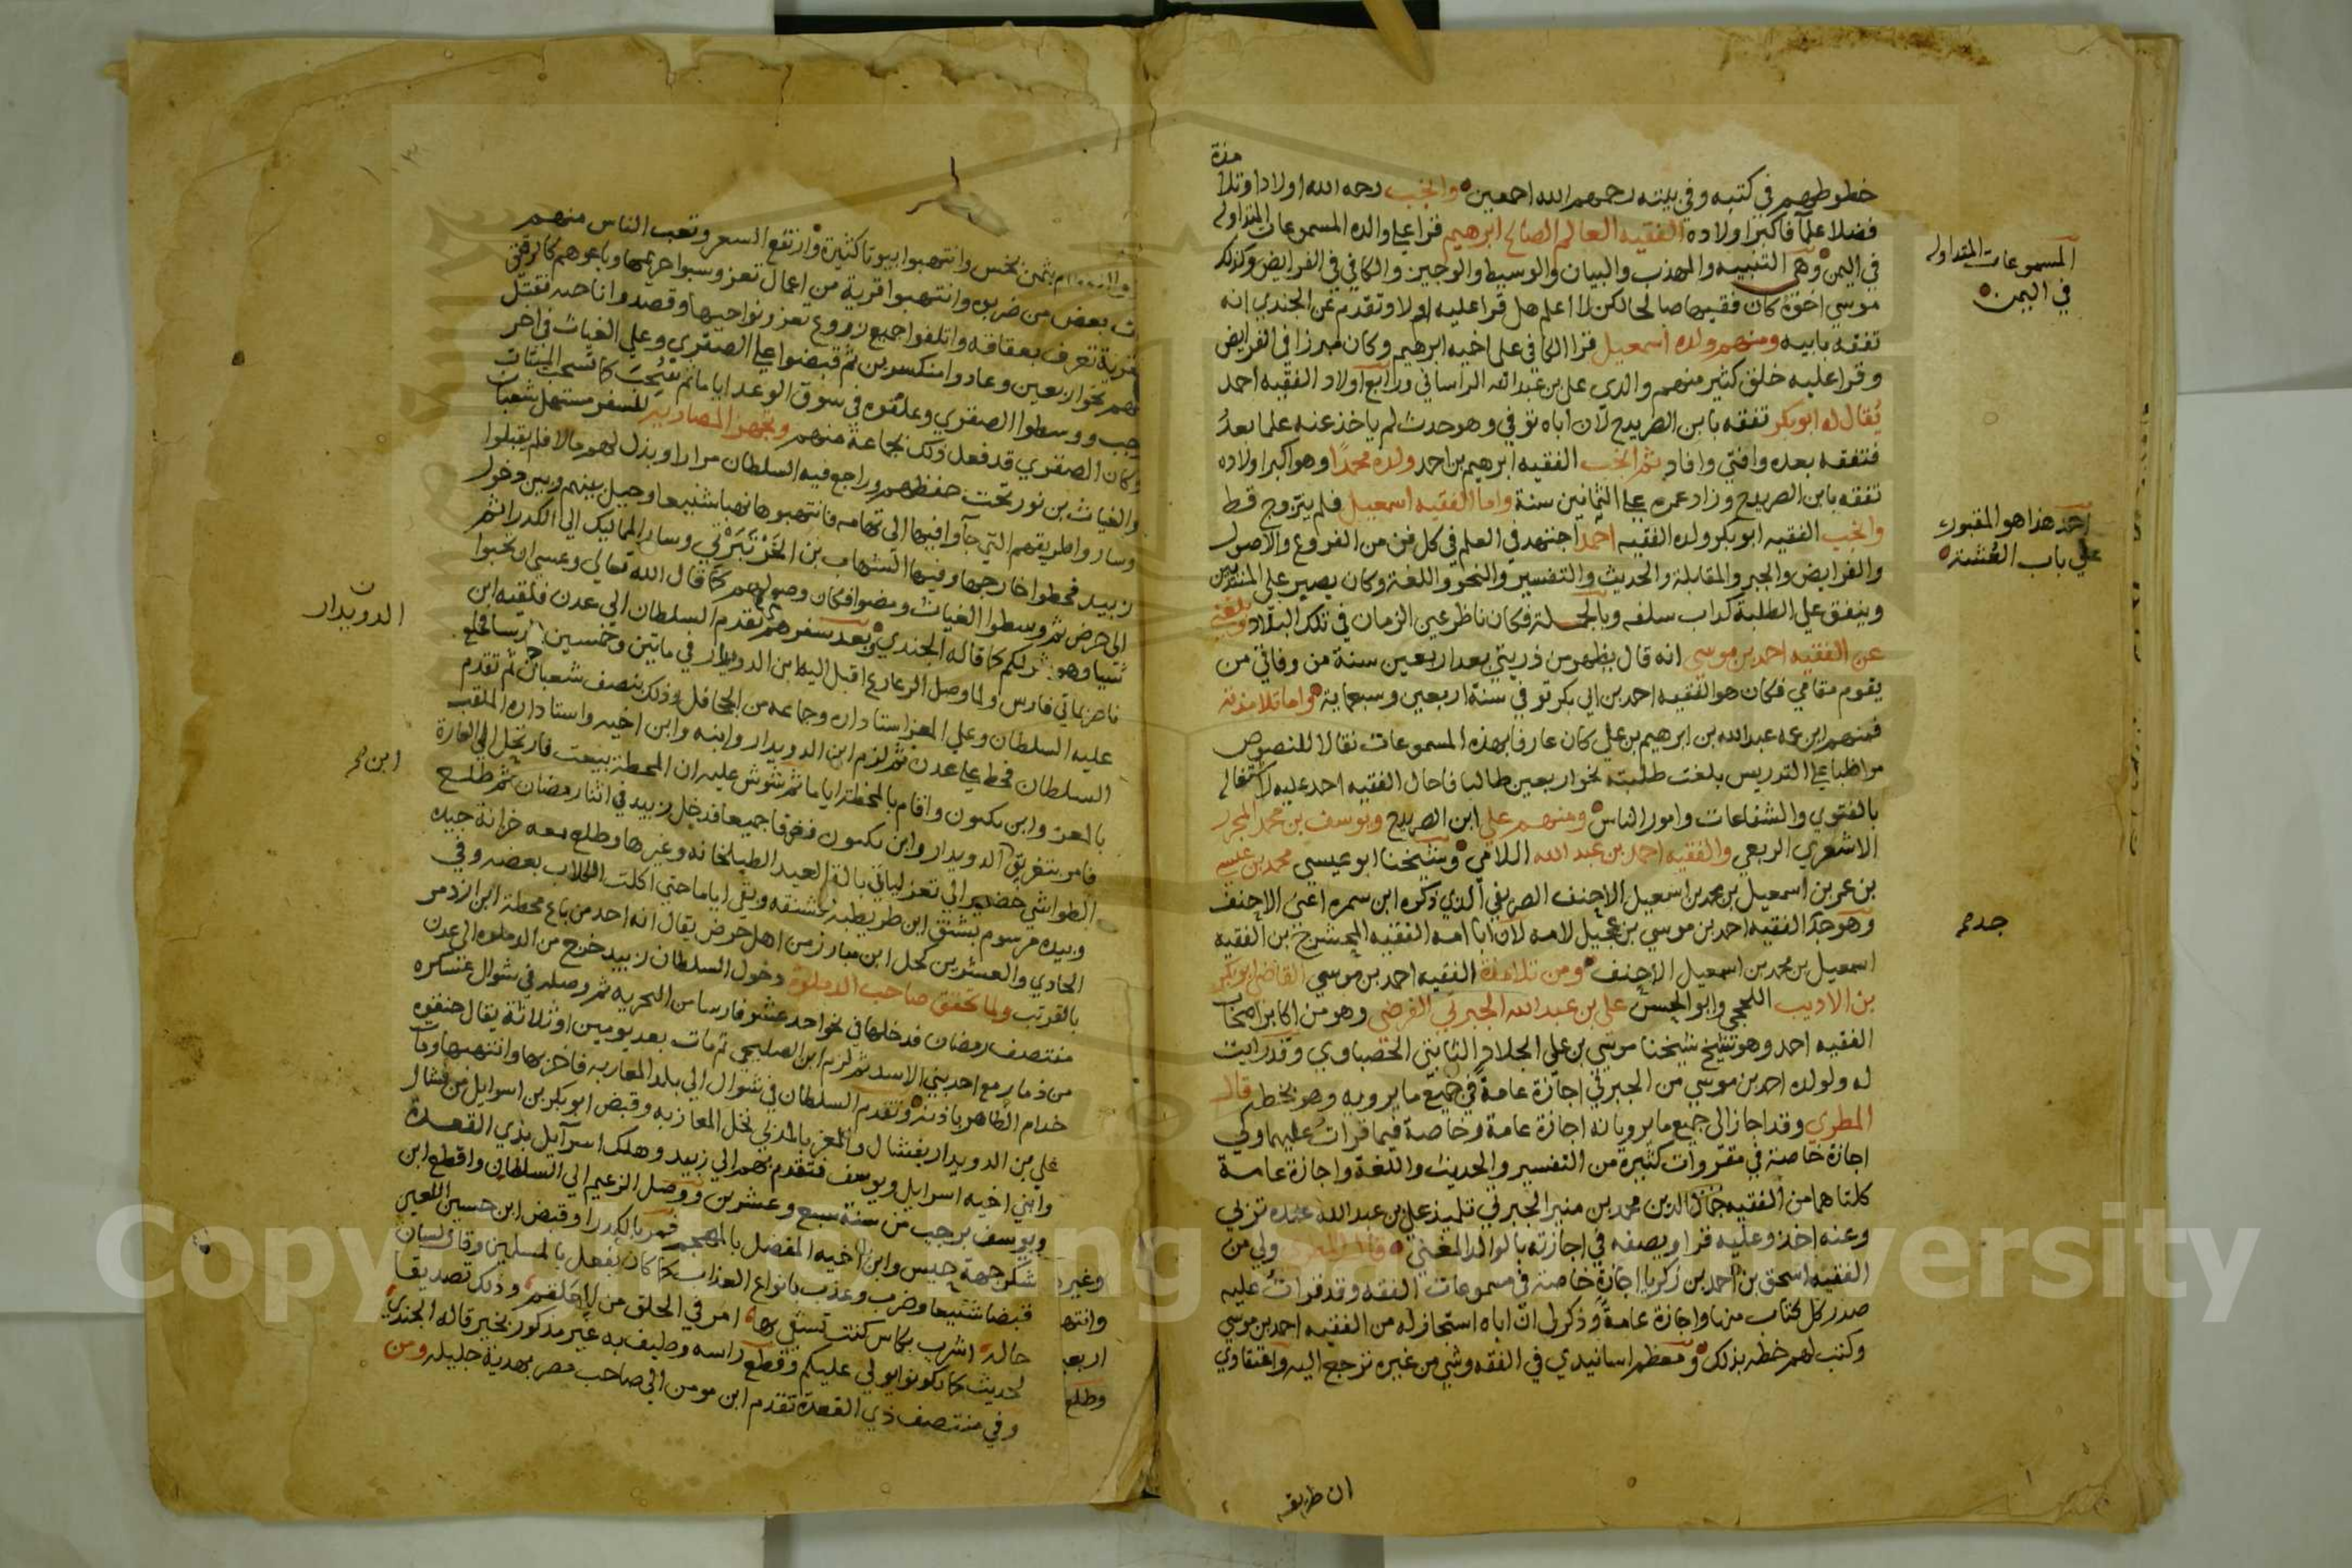 خطوطهم في كتبه وفي بيته رحمهم الله اجمعين وانجب رحمه الله اولادا وتلامذة
فضلا علما فاكبر اولاده الفقيه العالم الصالح ابرهيم قرا على والده المسموعات المتداوله
في اليمن وهي التنبيه والمهذب والبيان والوسيط والوجيز والكافي في الفرايض وكذلك
موسي اخوه كان فقيها صالحا لكن لا اعلم هل قرا عليه ام لا وتقدم عن الجندي انه
تفقه بابيه ومنهم ولده اسمعيل قرا الكافي على اخيه ابرهيم وكان مبرزا في الفرايض
وقرا عليه خلق كثير منهم والدي علي بن عبدالله الراساني ورابع اولاد الفقيه احمد
يقال له ابوبكر تفقه بابن الصريدح لان اباه توفي وهو حدث لم ياخذ عنه علما بعدُ
فتفقه بعده وافتى وافاد ثم انجب الفقيه ابرهيم بن احمد ولده محمدا وهو اكبر اولاده
تفقه بابن الصريدح وزاد عمره على الثمانين سنة واما الفقيه اسمعيل فلم يتزوج قط
وانجب الفقيه ابوبكر ولده الفقيه احمد اجتهد في العلم في كل فن من الفروع والاصول
والفرايض والجبر والمقابلة والحديث والتفسير والنحو واللغة وكان يصير على
وينفق علي الطلبة كداب سلفه وبالجملة فكان ناظر عين الزمان في تلك البلاد وبلغني
عن الفقيه احمد بن موسي انه قال يظهر من ذريتي بعد اربعين سنة من وفاتي من
يقوم مقامي فكان هو الفقيه احمد بن ابي بكر توفي في سنة اربعين وسبعماية واما تلامذته
فمنهم ابن عمه عبدالله بن ابرهيم بن علي كان عارفا بهذه المسموعات نقالا للنصوص
مواظبا على التدريس بلغت طلبته نحو اربعين طالبا فاحال الفقيه احمد عليه لاشتغاله
بالفتوي والشفاعات وامور الناس ومنهم علي ابن الصريدح ويوسف بن محمد
الاشعري الربعي والفقيه احمد بن عبد الله اللامي وشيخنا ابو عيسي محمد بن عيسى
بن عمر بن اسمعيل بن محمد بن اسمعيل الاحنف الصريفي الذي ذكره ابن سمره اعنى الاحنف
وهو جد الفقيه احمد بن موسي بن عجيل لامه لان ابا امه الفقيه بن الفقيه
اسمعيل بن محمد بن اسمعيل الاحنف ومن تلامذة الفقيه احمد بن موسي القاضي ابوبكر
بن الاديب اللحجي وابو الحسن علي بن عبد الله الجبرتي الفرضي وهو من اكابر اصحاب
الفقيه احمد وهو شيخ شيخنا موسي بن علي الجلاد وقد رايت
له ولولده احمد بن موسي من الجبرتي اجازة عامة في جميع ما يرويه وهو بخطه قال
المطري وقد اجازا لي جميع ما يرويانه اجازة عامة وخاصة فيما قرات عليهما ولي
اجازة خاصة في مقروات كثيرة من التفسير والحديث واللغة واجازة عامة
كلتاهما من الفقيه جمال الدين محمد بن منير الجبرتي تلميذ علي بن عبد الله
وعنه اخذ وعليه قرا ويصفه في اجازته بالوالد قال المطري ولي من
الفقيه اسحق بن احمد بن زكريا اجازة خاصة في مسموعات الفقه وقد قرات عليه
صدر كل كتاب منها واجازة عامة وذكر لي ان اباه استجاز له من الفقيه احمد بن موسي
وكتب لهم خطه بذلك ومعظم اسانيدي في الفقه وشي من غيره ترجع اليه واعتقادي
ان طريقه
المسموعات المتداوله
في اليمن
احمد هذا هو المقبور
علي باب
بثمن بخس وانتهبوا بيوتا كثيرة وارتفع السعر وتعب الناس منهم
بعض من ضربه وانتهبوا قرية من اعمال تعز وسبوا حريمها وباعوهم كالرقيق
تعرف بعقاقه واتلفوا جميع زروع تعز ونواحيها وقصدوا ناحية فقتل
نحو اربعين وعادوا منكسرين ثم قبضوا على الصقري وعلي الغياث في اخر
ووسطوا الصقري وعلقوه في سوق الوعد اياما ثم
وكان الصقري قد فعل ذلك بجماعة منهم وتجهز المصاريه للسفر مستهل شعبان
والغياث بن نور تحت حفظهم وراجع فيه السلطان مرارا وبذل لهم مالا فلم يقبلوا
وساروا طريقهم التي جآوا فيها الى تهامه فانتهبوها نهبا شنيعا وحيل بينهم وبين دخول
زبيد فحطوا خارجها وفيها الشهاب بن وسار المماليك الي الكدرا ثم
الى حرض ثم وسطوا الغياث ومضوا فكان وصولهم كما قال الله تعالي وعسي ان تحبوا
شييا وهو شر لكم كما قاله الجندي وبعد سفرهم تقدم السلطان الي عدن فلقيه ابن
ولما وصل الرعارع اقبل اليه ابن الدويدار في مايتين وخمسين فارسا
عليه السلطان وعلي المعز استاداره وجماعه من الجحافل وذلك بنصف شعبان ثم تقدم
السلطان فحط على عدن ثم لزم ابن الدويدار وابنه وابن اخيه واستاداره الملقب
بالمعز وابن بكمون واقام بالمحطة اياما ثم شوش عليه ان المحطة بيعت فارتحل الي العارة
فامر بتغريق الدويدار وابن بكمون فغرقا جميعا فدخل زبيد في اثنا رمضان ثم طلع
الطواشي الى تعز لياتي بالة العيد الطبلخانه وغيرها وطلع معه خزانة جيده
وبيده مرسوم بشنق ابن طريطيه فشنقه وبقي اياما حتى اكلت الكلاب بعضه وفي
الحادي والعشرين كحل ابن مبارز من اهل حرض يقال انه احد من باع محطة ابن ازدمر
بالقرتب ولما تحقق صاحب الدملوه دخول السلطان زبيد خرج من الدملوه الى عدن
منتصف رمضان فدخلها في نحو احد عشر فارسا من البحريه ثم وصله في شوال عسكره
من ذمار مع احد بني الاسد ثم لزم ابن الصليحي ثم مات بعد يومين او ثلاثة يقال خنقوه
خدام الظاهر باذنه وتقدم السلطان في شوال الي بلد المعازبه فاخربها وانتهبها
وابني اخيه اسرايل ويوسف فتقدم بهم الي زبيد وهلك اسرآيل بذي القعدة
ويوسف برجب من سنة سبع وعشرين ووصل الزعيم الي السلطان واقطع ابن
وابن اخيه المفضل بالمهجم فمر بالكدرا وقبض ابن حسين اللعين
قبضا شنيعا وضرب وعذب بانواع العذاب كما كان يفعل بالمسلمين وقال لسان
حاله اشرب بكاس كنت تسقي بها امر في الحلق من العلقم وذلك تصديقا
لحديث كما تكونوا يولي عليكم وقطع راسه وطيف به غير مذكور بخير قاله الجندي
وفي منتصف ذي القعدة تقدم ابن مومن الي صاحب مصر بهدية جليله ومن
الدويدار
وغيره
وانتها
اربع
وطلع